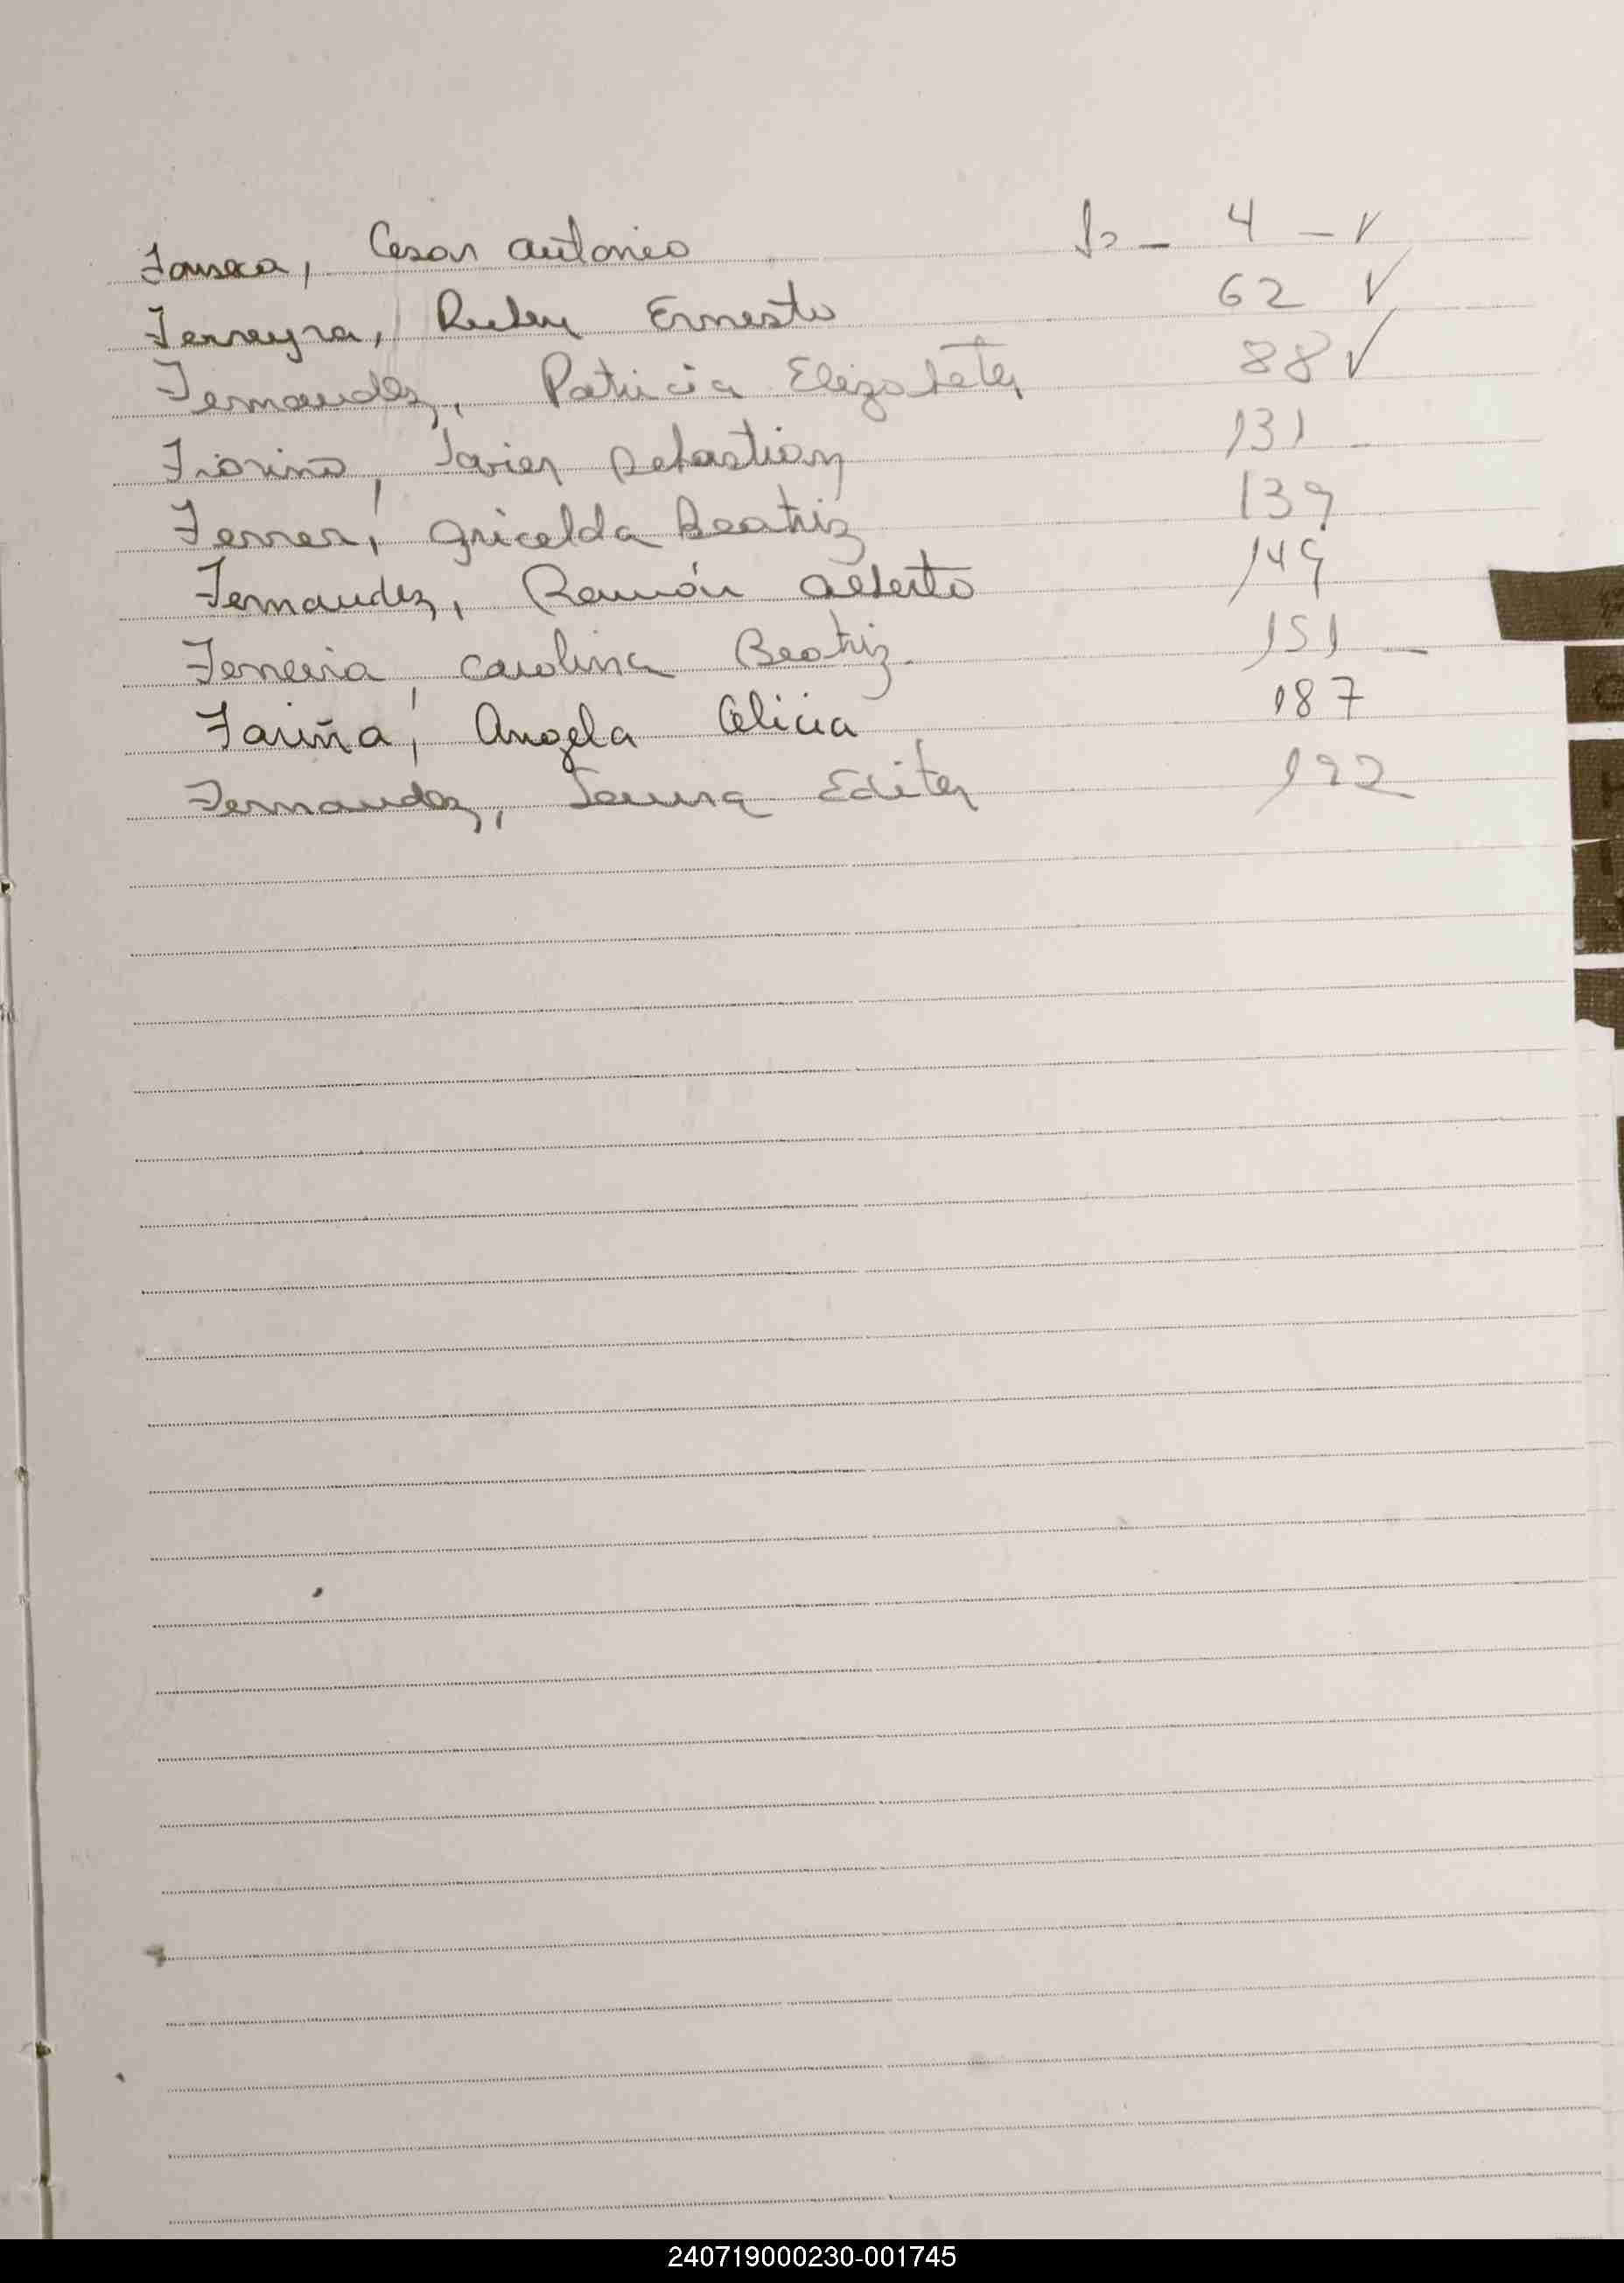 Fonseca, Cesar Antonio fo - 4 - ✓
Ferreyra, Ruben Ernesto 62 ✓
Fernandez, Patricia Elizabeth 88 ✓
Fiorino, Javier Sebastian 131 -
Ferrer, Gricelda Beatriz 139
Fernandez, Ramón Alberto 149
Ferreira, Carolina Beatriz. 151 -
Fariña, Angela Alicia 187
Fernandez, Editer 192
240719000230-001745